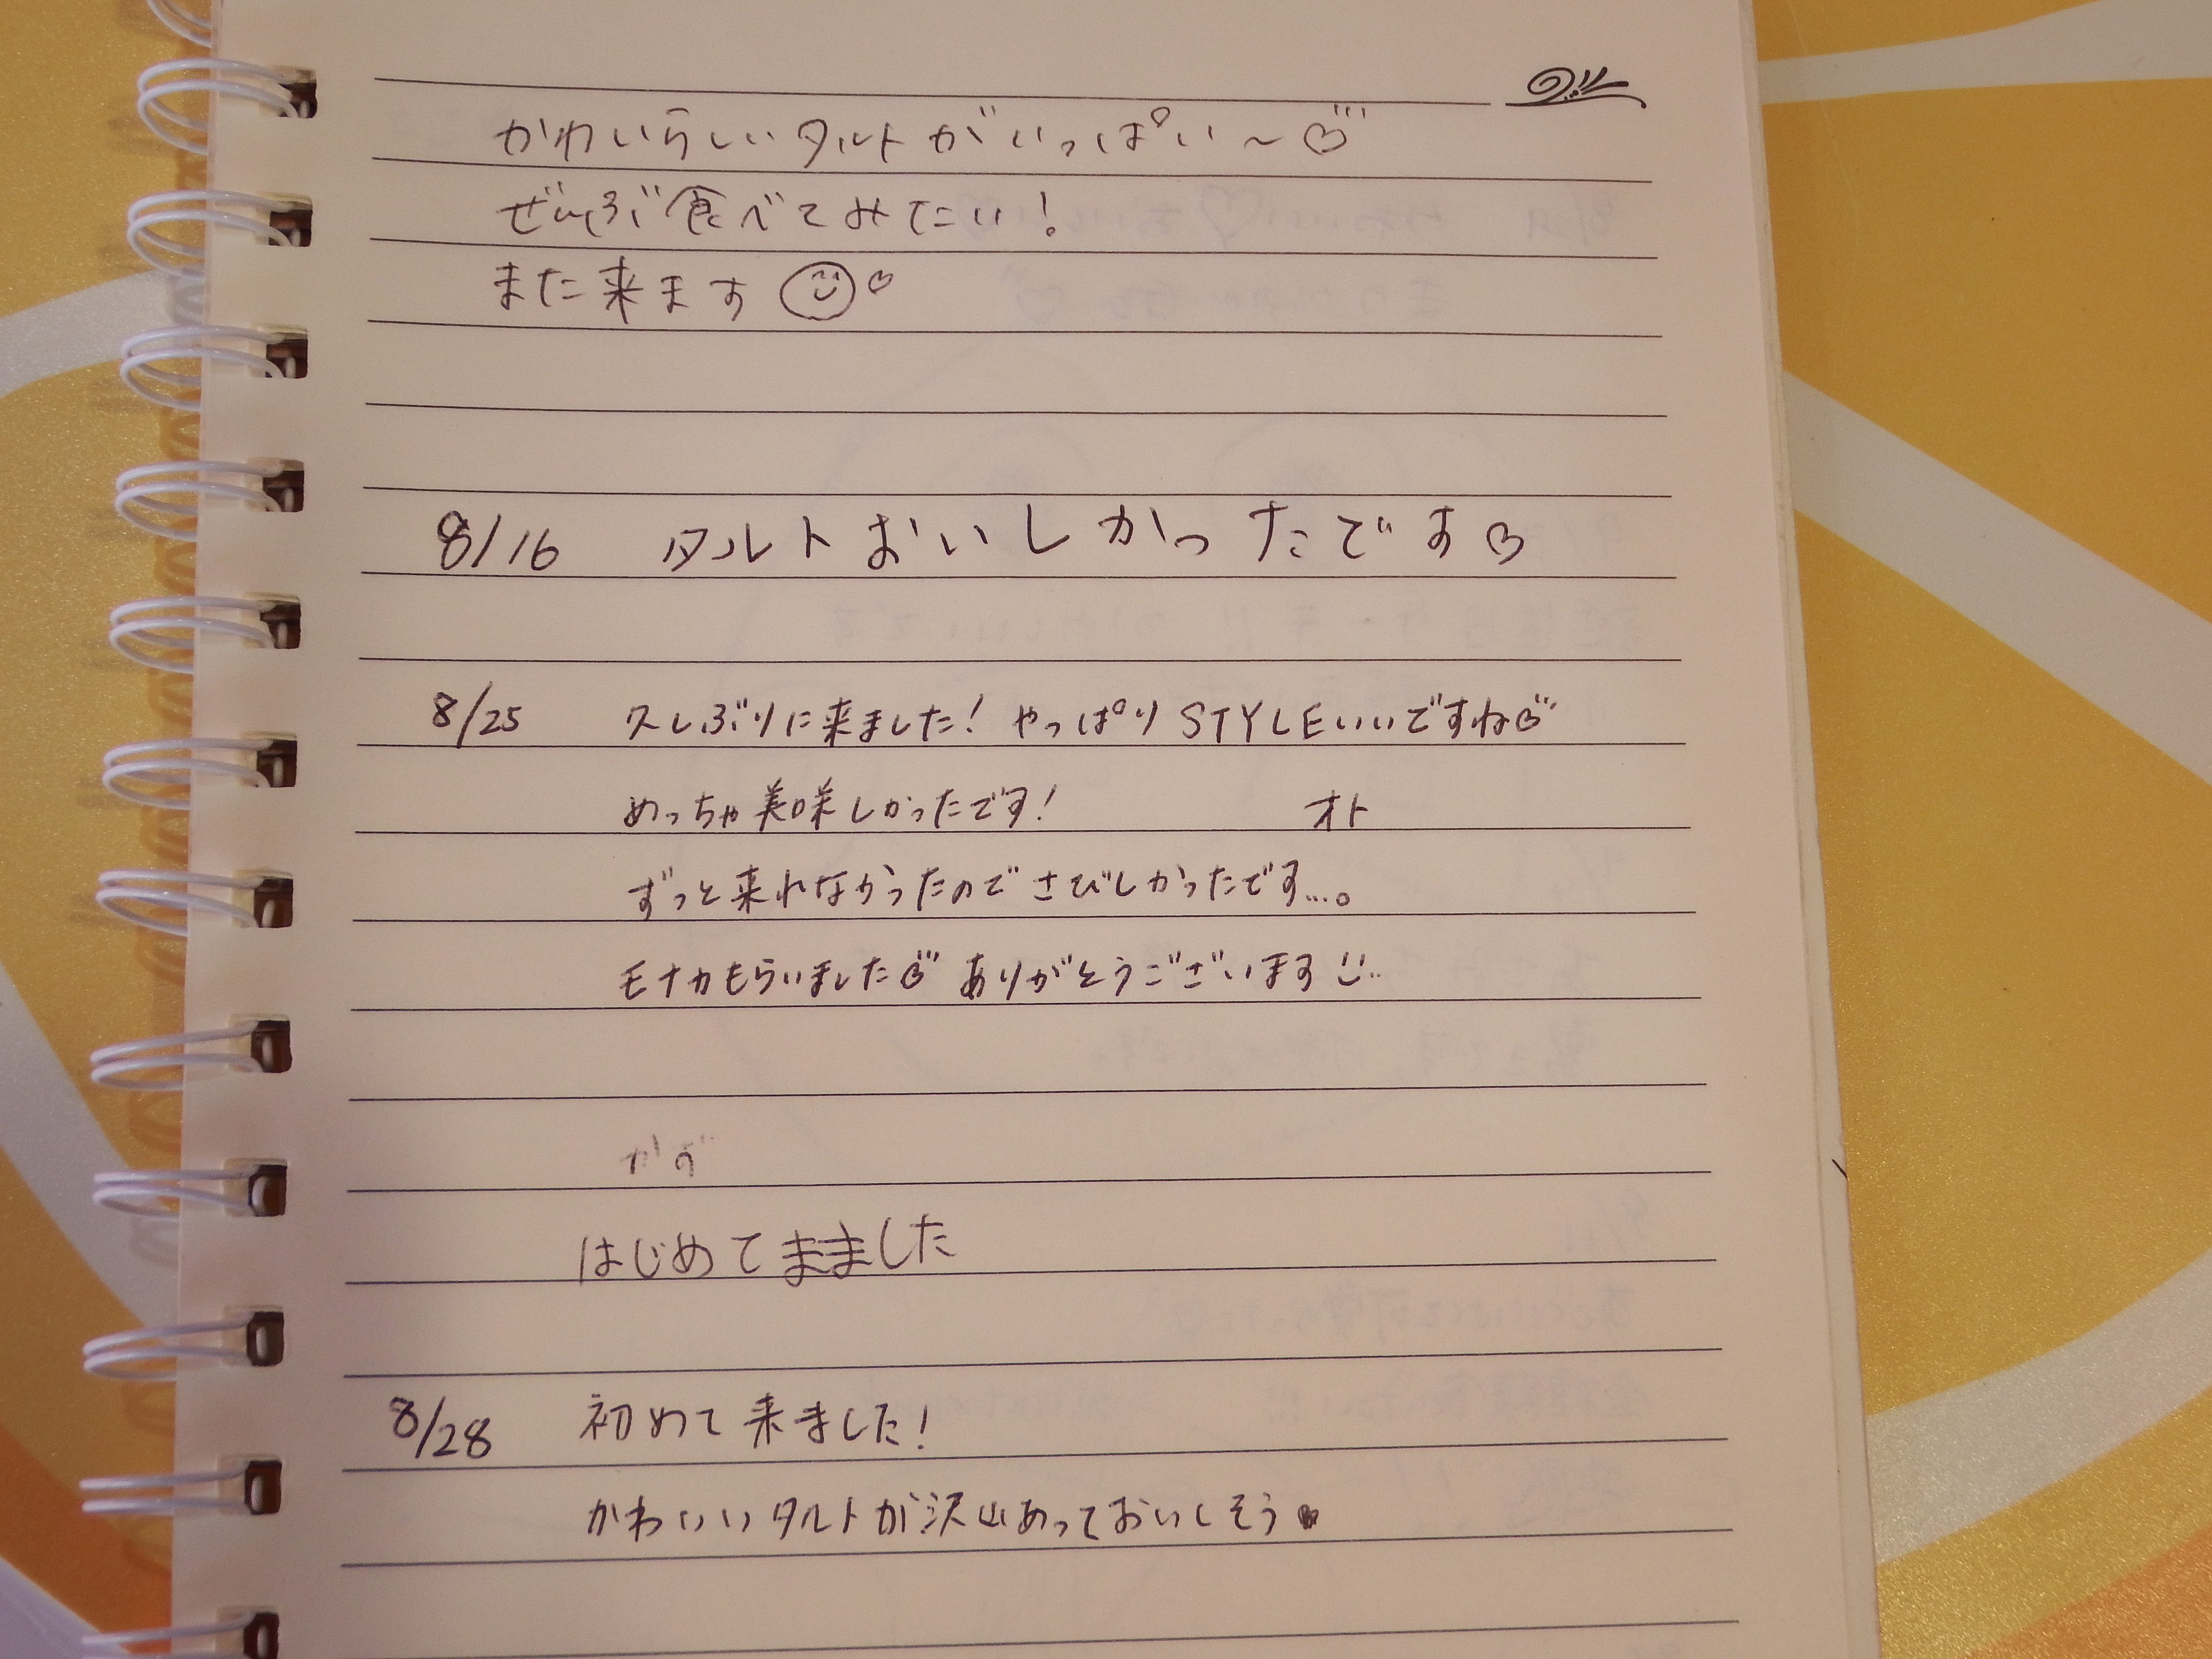 かわいらしいタルトがいっぱい～♡
ぜんぶ食べてみたい！
また来ます☺♡
8/16 タルトおいしかったです♡
8/25 久しぶりに来ました！やっぱりSTYLEいいですね♡
めっちゃ美味しかったです！ オト
ずっと来れなかったのでさびしかったです…。
モナカもらいました♡ ありがとうございます
はじめてまました
8/28 初めて来ました！
かわいいタルトが沢山あっておいしそう♥